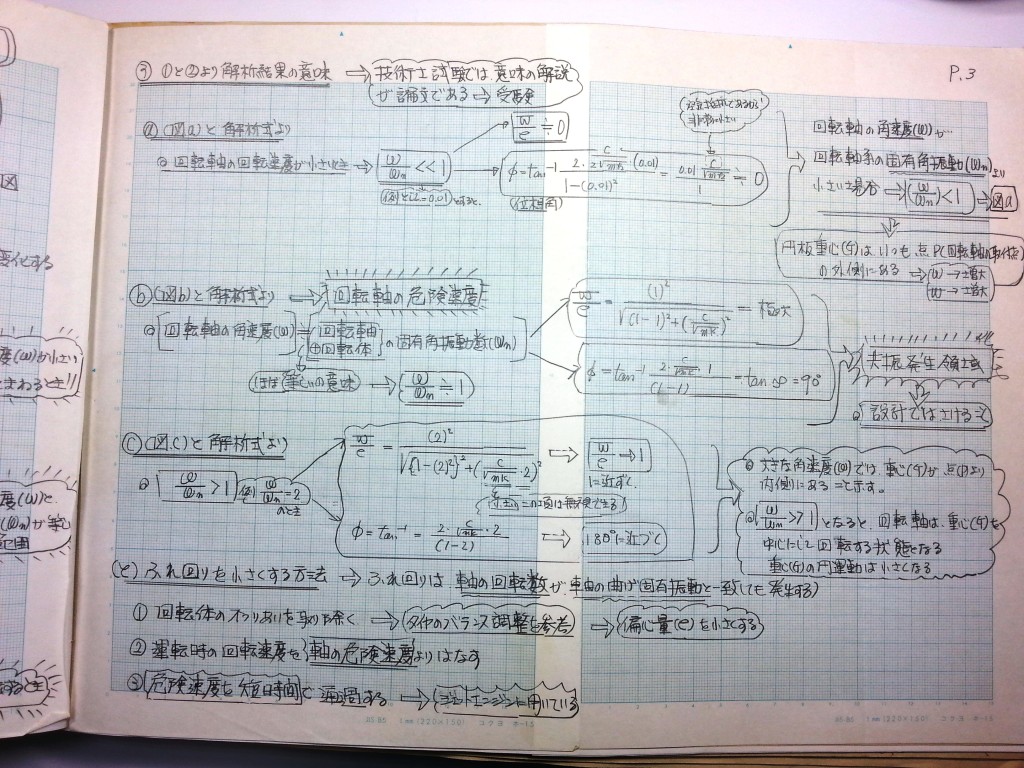 P.3
①と②より解析結果の意味 ⇒ 技術士試験では、意味の解説
が論文である ⇒ 受験
ⓐ (図a)と解析式より
◎ 回転軸の回転速度が小さいとき → ω/ωn << 1
(例として=0.01)とすると、
w/e ≒ 0
φ = tan⁻¹ 2・c/2√mk・(0.01) / 1-(0.01)² = 0.01 c/√mk / 1 ≒ 0
(位相角)
空気抵抗であるから
非常に小さい
回転軸の角速度(ω)が…
回転軸系の固有角振動(ωn)より
小さい場合 ⇒ (ω/ωn)<1 ⇒ 図a
円板重心(G)は、いつも、点P(回転軸の取付点)
の外側にある ⇒ (ω → 増大
w → 増大
ⓑ (図b)と解析式より ⇒ 回転軸の危険速度
◎ 回転軸の角速度(ω) = 回転軸
⊕回転体 の固有角振動数(ωn)
ほぼ等しいの意味 → ω/ωn ≒ 1
w/e = (1)² / √(1-1)²+(c/√mk)² = 極大
φ = tan⁻¹ 2・c/√mk・1 / (1-1) = tan ∞ = 90°
共振発生領域
◎ 設計ではさけること
ⓒ (図.c)と解析式より
◎ ω/ωn > 1 (例) ω/ωn = 2
のとき
w/e = (2)² / √{1-(2)²}²+(c/√mk・2)²
⇒ w/e → 1
1に近ずく
φ = tan⁻¹ 2・c/√mk・2 / (1-2) ⇒ 180°に近づく
◎ 大きな角速度(ω)では、重心(G)が点(P)より
内側にあることを示す。
◎ ω/ωn >> 1 となると、回転軸は、重心(G)を
中心にして回転する状態となる
重心(G)の円運動は小さくなる
(と) ふれ回りを小さくする方法 → ふれ回りは、軸の回転数が、車軸の曲げ固有振動と一致しても発生する)
① 回転体のつりあいを取り除く → タイヤのバランス調整を参考 ⇒ 偏心量(e)を小さくする
② 運転時の回転速度を軸の危険速度よりはなす
③ 危険速度を短時間で通過する → ジェットエンジンに用いている
1mm (220×150) コクヨ ホ-15
1mm (220×150) コクヨ ホ-15
図
変化する